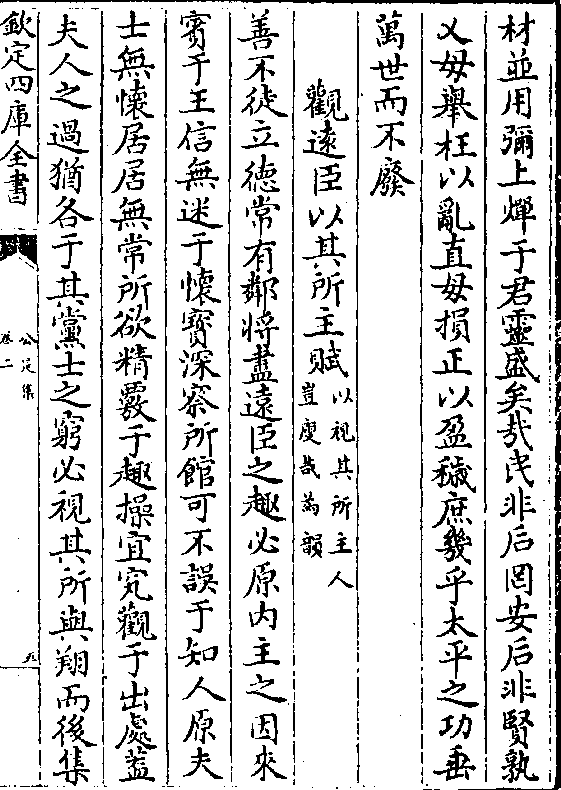 材並用彌上燀于君靈盛矣哉民非后罔安后非賢孰
乂毋舉枉以亂直毋損正以盈穢庶幾乎太平之功垂
萬世而不廢
觀遠臣以其所主賦以視其所主人
豈廋哉為韻
善不徒立德常有鄰將盡遠臣之趣必原内主之因來
賓于王信無迷于懷寳深察所館可不誤于知人原夫
士無懷居居無常所欲精覈于趣操宜究觀于出處葢
夫人之過猶各于其黨士之窮必視其所與翔而後集
欽定四庫全書
公是集
卷二
九